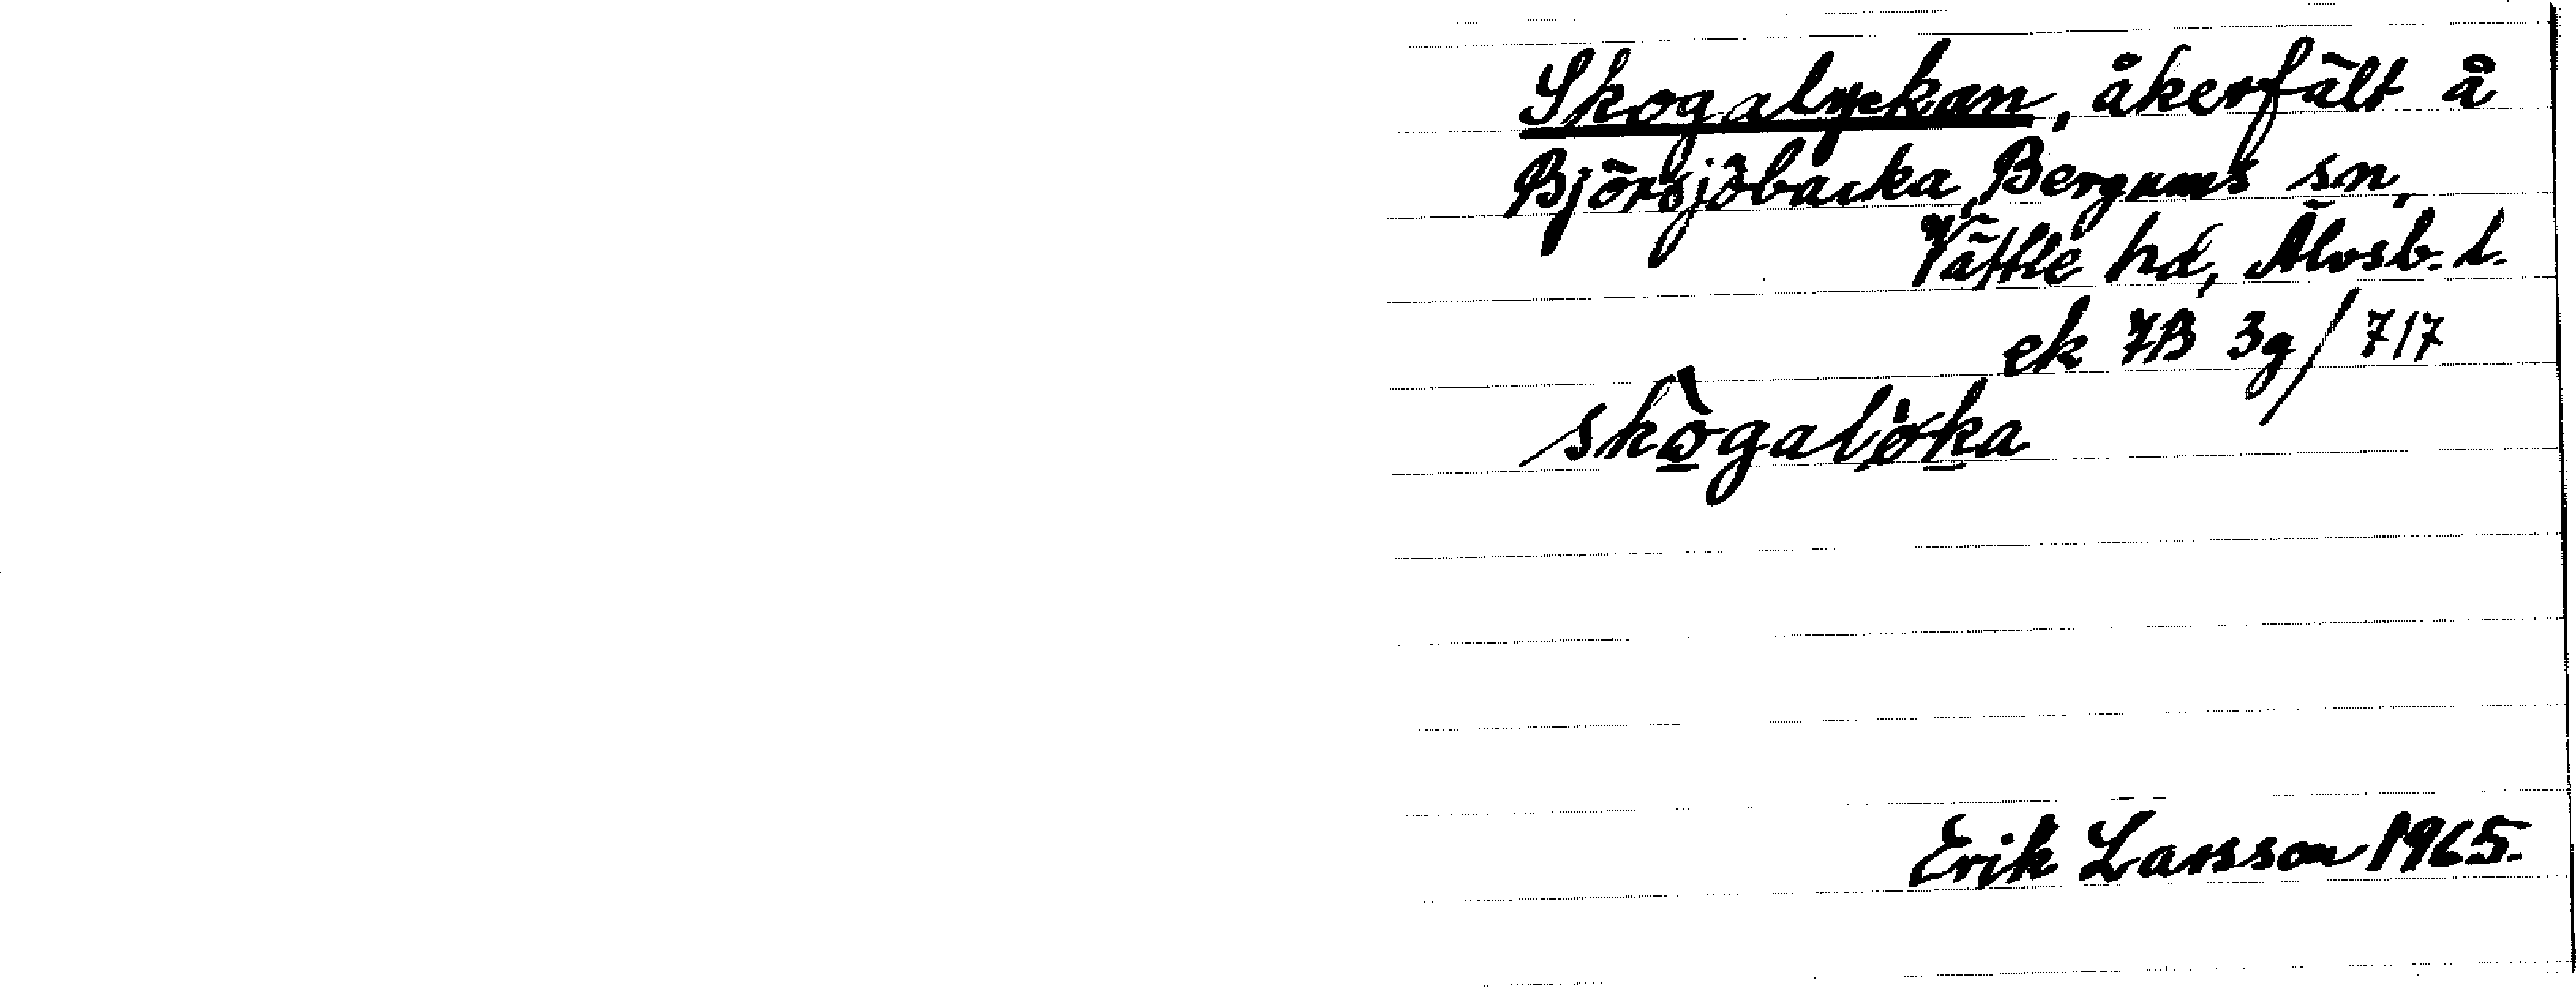 Skogalyckan, åkerfält å
Björsjöbacka, Bergums sn,
Vättle hd, Älvsb. l.
ek 7B 3g/717
skògalöka
Erik Larsson 1965.